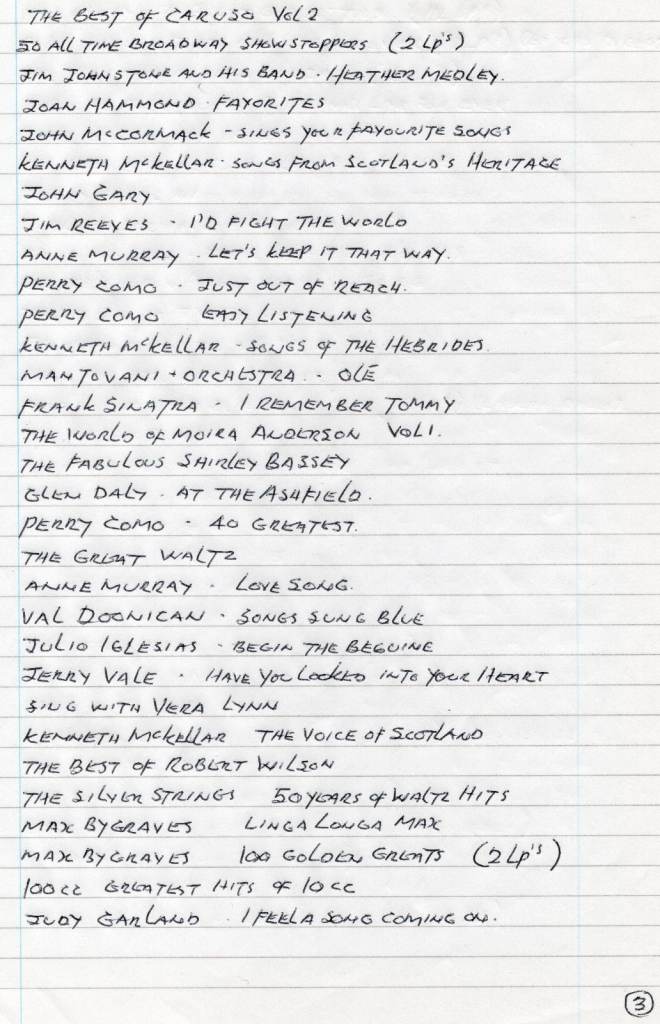 THE BEST OF CARUSO VOL 2
50 ALL TIME BROADWAY SHOWSTOPPERS (2 LP'S)
JIM JOHNSTONE AND HIS BAND · HEATHER MEDLEY.
JOAN HAMMOND · FAVORITES
JOHN McCORMACK - SINGS YOUR FAVOURITE SONGS
KENNETH McKELLAR · SONGS FROM SCOTLAND'S HERITAGE
JOHN GARY
JIM REEVES · I'D FIGHT THE WORLD
ANNE MURRAY · LET'S KEEP IT THAT WAY.
PERRY COMO · JUST OUT OF REACH.
PERRY COMO EASY LISTENING
KENNETH McKELLAR - SONGS OF THE HEBRIDES.
MANTOVANI + ORCHESTRA · OLÉ
FRANK SINATRA · I REMEMBER TOMMY
THE WORLD OF MOIRA ANDERSON VOL 1.
THE FABULOUS SHIRLEY BASSEY
GLEN DALY · AT THE ASHFIELD.
PERRY COMO · 40 GREATEST.
THE GREAT WALTZ
ANNE MURRAY · LOVE SONG.
VAL DOONICAN · SONGS SUNG BLUE
JULIO IGLESIAS · BEGIN THE BEGUINE
JERRY VALE · HAVE YOU LOOKED INTO YOUR HEART
SING WITH VERA LYNN
KENNETH McKELLAR THE VOICE OF SCOTLAND
THE BEST OF ROBERT WILSON
THE SILVER STRINGS 50 YEARS OF WALTZ HITS
MAX BYGRAVES LINGALONGA MAX
MAX BYGRAVES 100 GOLDEN GREATS (2 LP'S)
100CC GREATEST HITS OF 10CC
JUDY GARLAND · I FEEL A SONG COMING ON.
3